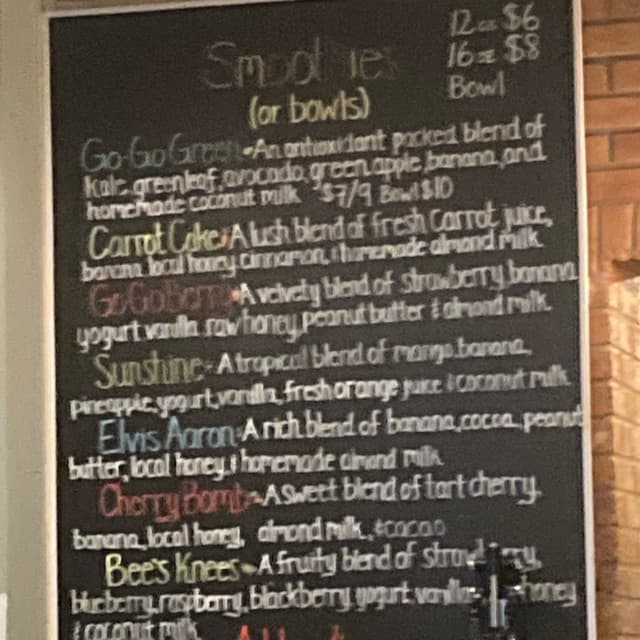 12oz $6
16oz $8
Bowl
Smoothies
(or bowls)
Go-Go Green - An antioxidant packed blend of
kale, greenleaf, avocado, green apple, banana, and
homemade coconut milk $7/9 Bowl $10
Carrot Cake - A lush blend of fresh carrot juice,
banana, local honey, cinnamon, & homemade almond milk
GoGo Berry - A velvety blend of strawberry, banana
yogurt, vanilla, raw honey, peanut butter & almond milk.
Sunshine - A tropical blend of mango, banana,
pineapple, yogurt, vanilla, fresh orange juice & coconut milk
Elvis Aaron - A rich blend of banana, cocoa, peanut
butter, local honey, & homemade almond milk
Cherry Bomb - A sweet blend of tart cherry,
banana, local honey, almond milk, & cacao
Bee's Knees - A fruity blend of strawberry,
blueberry, raspberry, blackberry, yogurt, vanilla, honey
& coconut milk